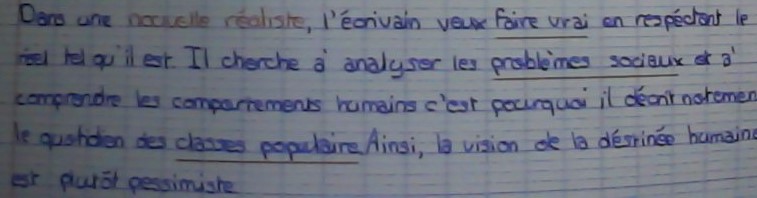 Dans une nouvelle réaliste, l'écrivain veux faire vrai en respectant le
réel tel qu'il est. Il cherche à analyser les problèmes sociaux et à
comprendre les comportements humains c'est pourquoi il décrit notammen
le quotidien des classes populaire. Ainsi, la vision de la destinée humaine
est plutôt pessimiste